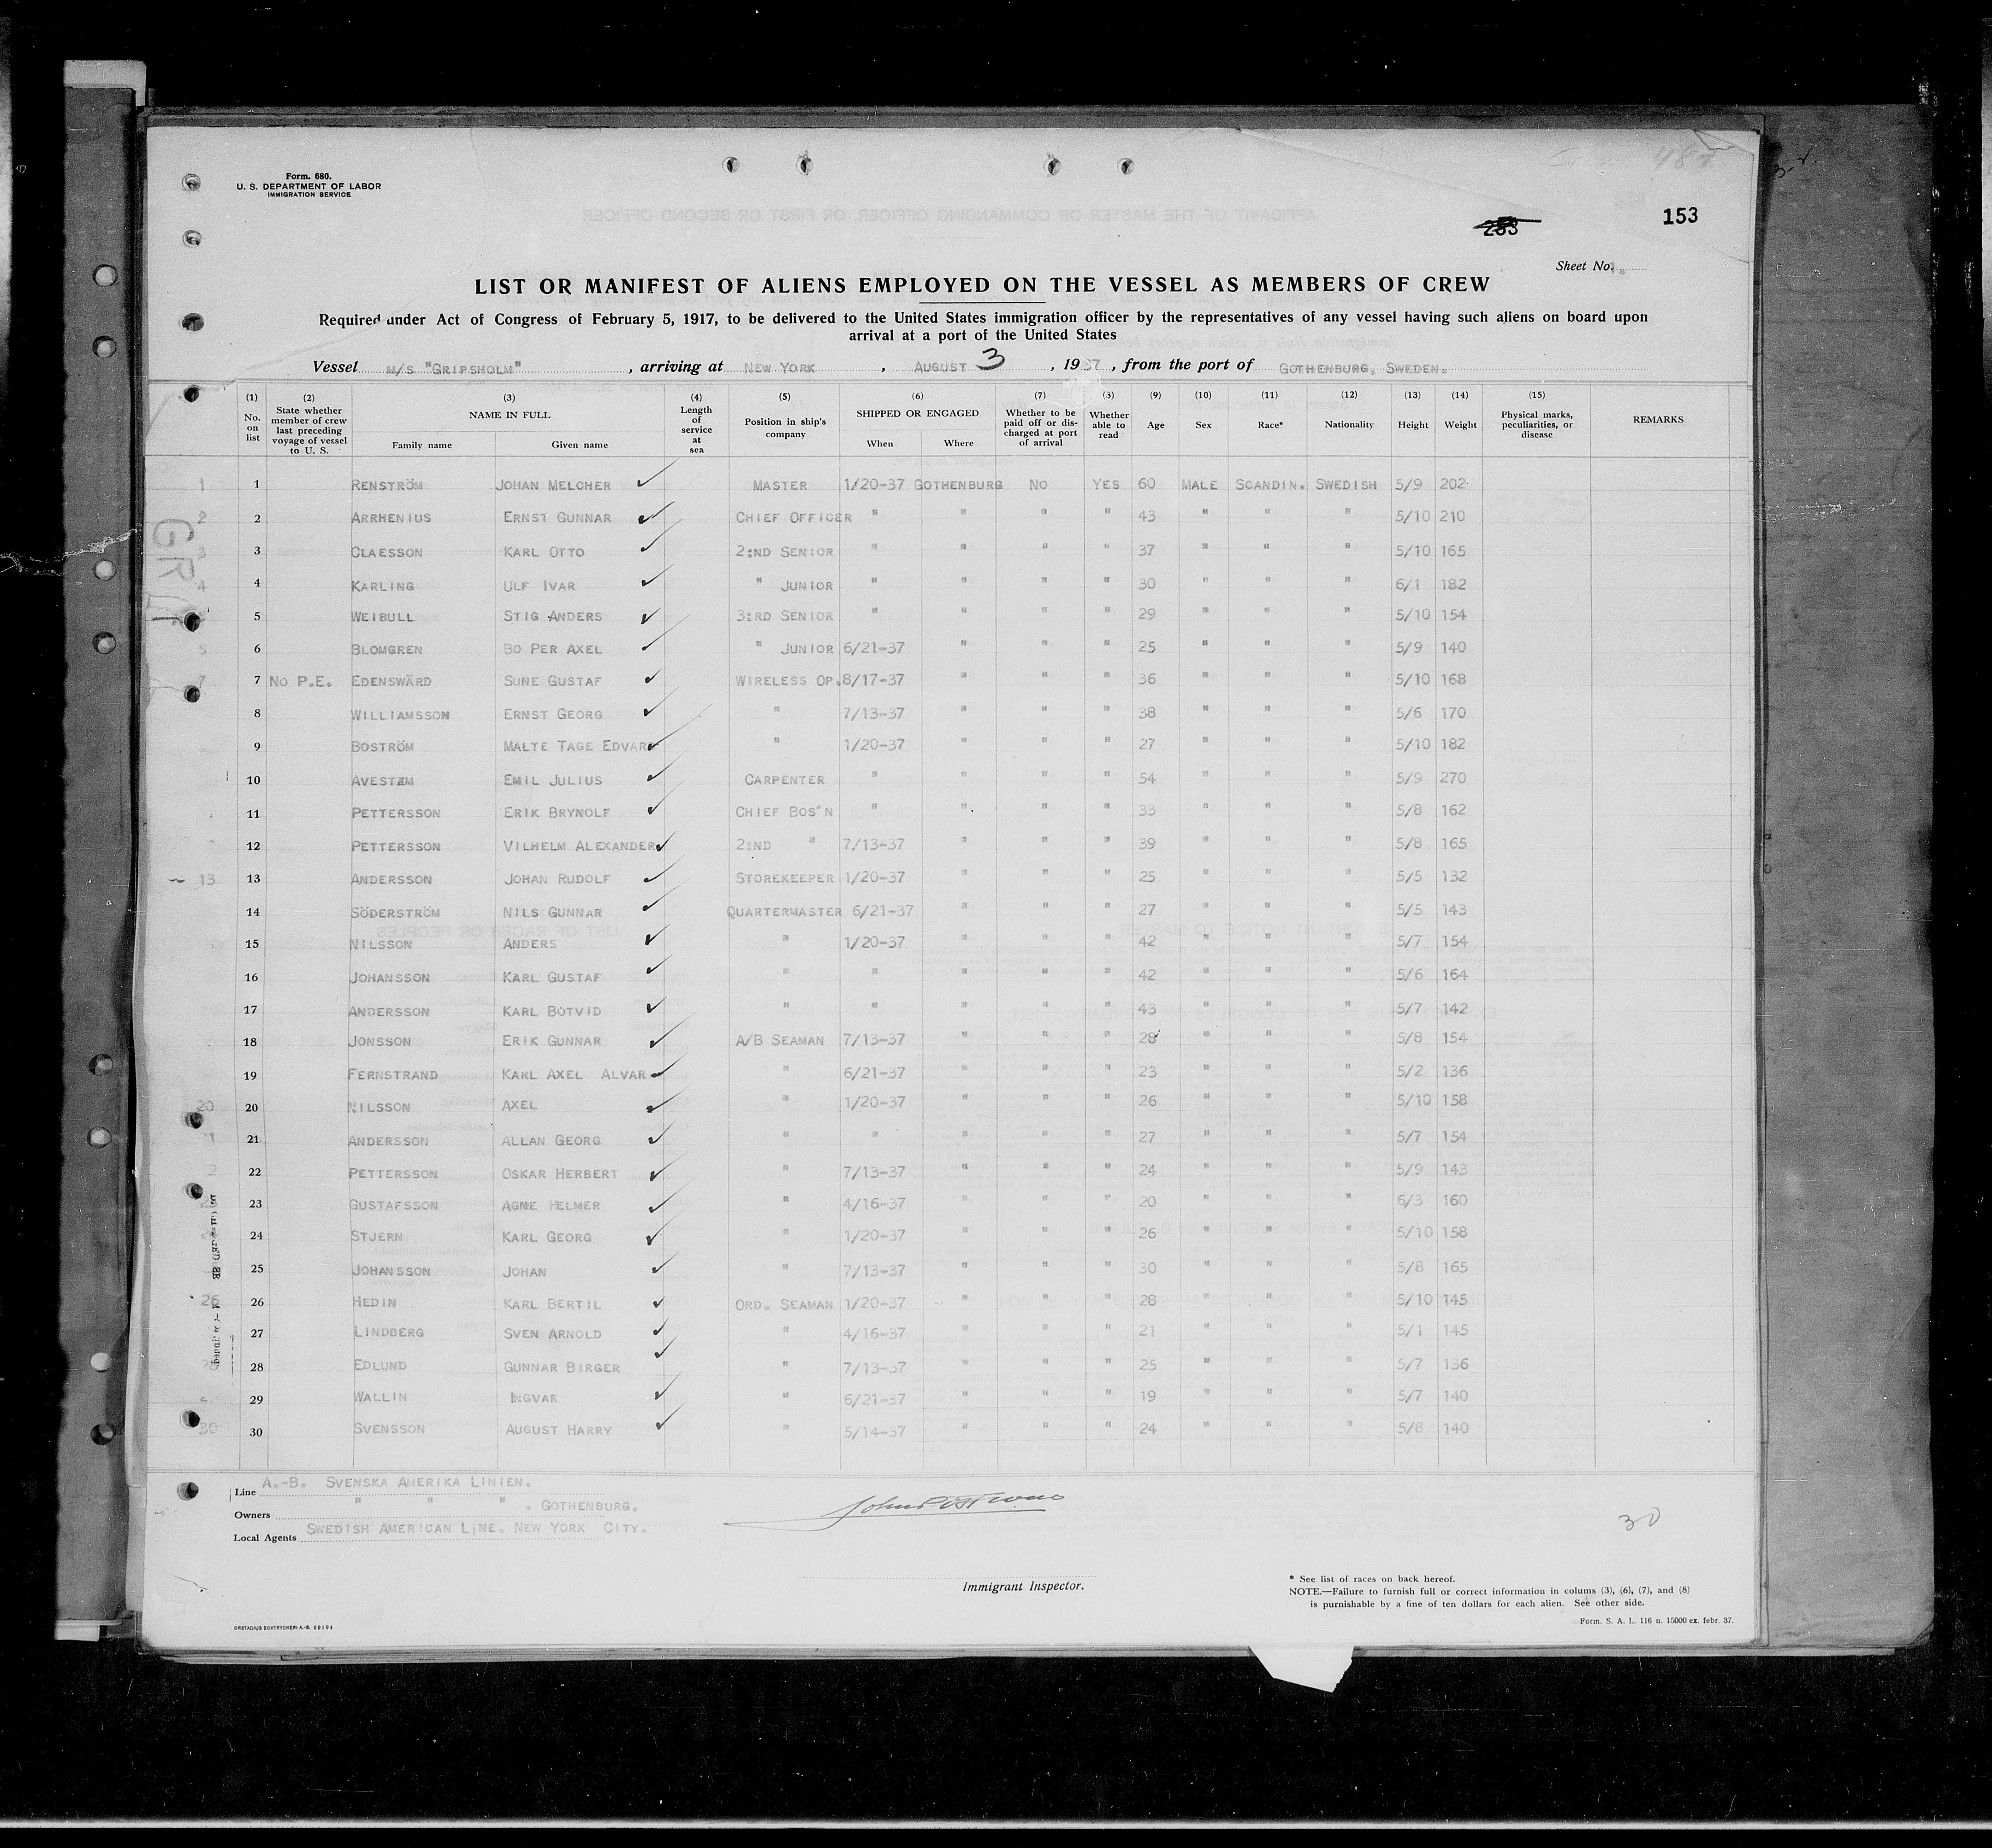 Form. 680.
U. S. DEPARTMENT OF LABOR
IMMIGRATION SERVICE
153
Sheet No. 1.
LIST OR MANIFEST OF ALIENS EMPLOYED ON THE VESSEL AS MEMBERS OF CREW
Required under Act of Congress of February 5, 1917, to be delivered to the United States immigration officer by the representatives of any vessel having such aliens on board upon
arrival at a port of the United States
Vessel M/S "GRIPSHOLM" , arriving at NEW YORK , AUGUST 3 , 1937 , from the port of GOTHENBURG, SWEDEN.
(1) No. on list (2) State whether member of crew last preceding voyage of vessel to U. S. (3) NAME IN FULL Family name Given name (4) Length of service at sea (5) Position in ship's company (6) SHIPPED OR ENGAGED When Where (7) Whether to be paid off or discharged at port of arrival (8) Whether able to read (9) Age (10) Sex (11) Race* (12) Nationality (13) Height (14) Weight (15) Physical marks, peculiarities, or disease REMARKS
1 RENSTRÖM JOHAN MELCHER MASTER 1/20-37 GOTHENBURG NO YES 60 MALE SCANDIN. SWEDISH 5/9 202
2 ARRHENIUS ERNST GUNNAR CHIEF OFFICER " " " " 43 " " " 5/10 210
3 CLAESSON KARL OTTO 2:ND SENIOR " " " " 37 " " " 5/10 165
4 KARLING ULF IVAR " JUNIOR " " " " 30 " " " 6/1 182
5 WEIBULL STIG ANDERS 3:RD SENIOR " " " " 29 " " " 5/10 154
6 BLOMGREN BO PER AXEL " JUNIOR 6/21-37 " " " 25 " " " 5/9 140
7 NO P.E. EDENSWÄRD SUNE GUSTAF WIRELESS OP. 8/17-37 " " " 36 " " " 5/10 168
8 WILLIAMSSON ERNST GEORG " 7/13-37 " " " 38 " " " 5/6 170
9 BOSTRÖM MALTE TAGE EDVARD " 1/20-37 " " " 27 " " " 5/10 182
10 EMIL JULIUS CARPENTER " " " " 54 " " " 5/9 270
11 PETTERSSON ERIK BRYNOLF CHIEF BOS'N " " " " 33 " " " 5/8 162
12 PETTERSSON VILHELM ALEXANDER 2:ND " 7/13-37 " " " 39 " " " 5/8 165
13 ANDERSSON JOHAN RUDOLF STOREKEEPER 1/20-37 " " " 25 " " " 5/5 132
14 SÖDERSTRÖM NILS GUNNAR QUARTERMASTER 6/21-37 " " " 27 " " " 5/5 143
15 NILSSON ANDERS " 1/20-37 " " " 42 " " " 5/7 154
16 JOHANSSON KARL GUSTAF " " " " " 42 " " " 5/6 164
17 ANDERSSON KARL BOTVID " " " " " 43 " " " 5/7 142
18 JONSSON ERIK GUNNAR A/B SEAMAN 7/13-37 " " " 28 " " " 5/8 154
19 FERNSTRAND KARL AXEL ALVAR " 6/21-37 " " " 23 " " " 5/2 136
20 NILSSON AXEL " 1/20-37 " " " 26 " " " 5/10 158
21 ANDERSSON ALLAN GEORG " " " " " 27 " " " 5/7 154
22 PETTERSSON OSKAR HERBERT " 7/13-37 " " " 24 " " " 5/9 143
23 GUSTAFSSON AGNE HELMER " 4/16-37 " " " 20 " " " 6/3 160
24 STJERN KARL GEORG " 1/20-37 " " " 26 " " " 5/10 158
25 JOHANSSON JOHAN " 7/13-37 " " " 30 " " " 5/8 165
26 HEDIN KARL BERTIL ORD. SEAMAN 1/20-37 " " " 28 " " " 5/10 145
27 LINDBERG SVEN ARNOLD " 4/16-37 " " " 21 " " " 5/1 145
28 EDLUND GUNNAR BIRGER " 7/13-37 " " " 25 " " " 5/7 136
29 WALLIN INGVAR " 6/21-37 " " " 19 " " " 5/7 140
30 SVENSSON AUGUST HARRY " 5/14-37 " " " 24 " " " 5/8 140
Line A.-B. SVENSKA AMERIKA LINIEN.
Owners " " " . GOTHENBURG.
Local Agents SWEDISH AMERICAN LINE. NEW YORK CITY.
30
Immigrant Inspector.
* See list of races on back hereof.
NOTE.—Failure to furnish full or correct information in colums (3), (6), (7), and (8)
is punishable by a fine of ten dollars for each alien. See other side.
Form. S. A. L. 116 n. 15000 ex. febr. 37.